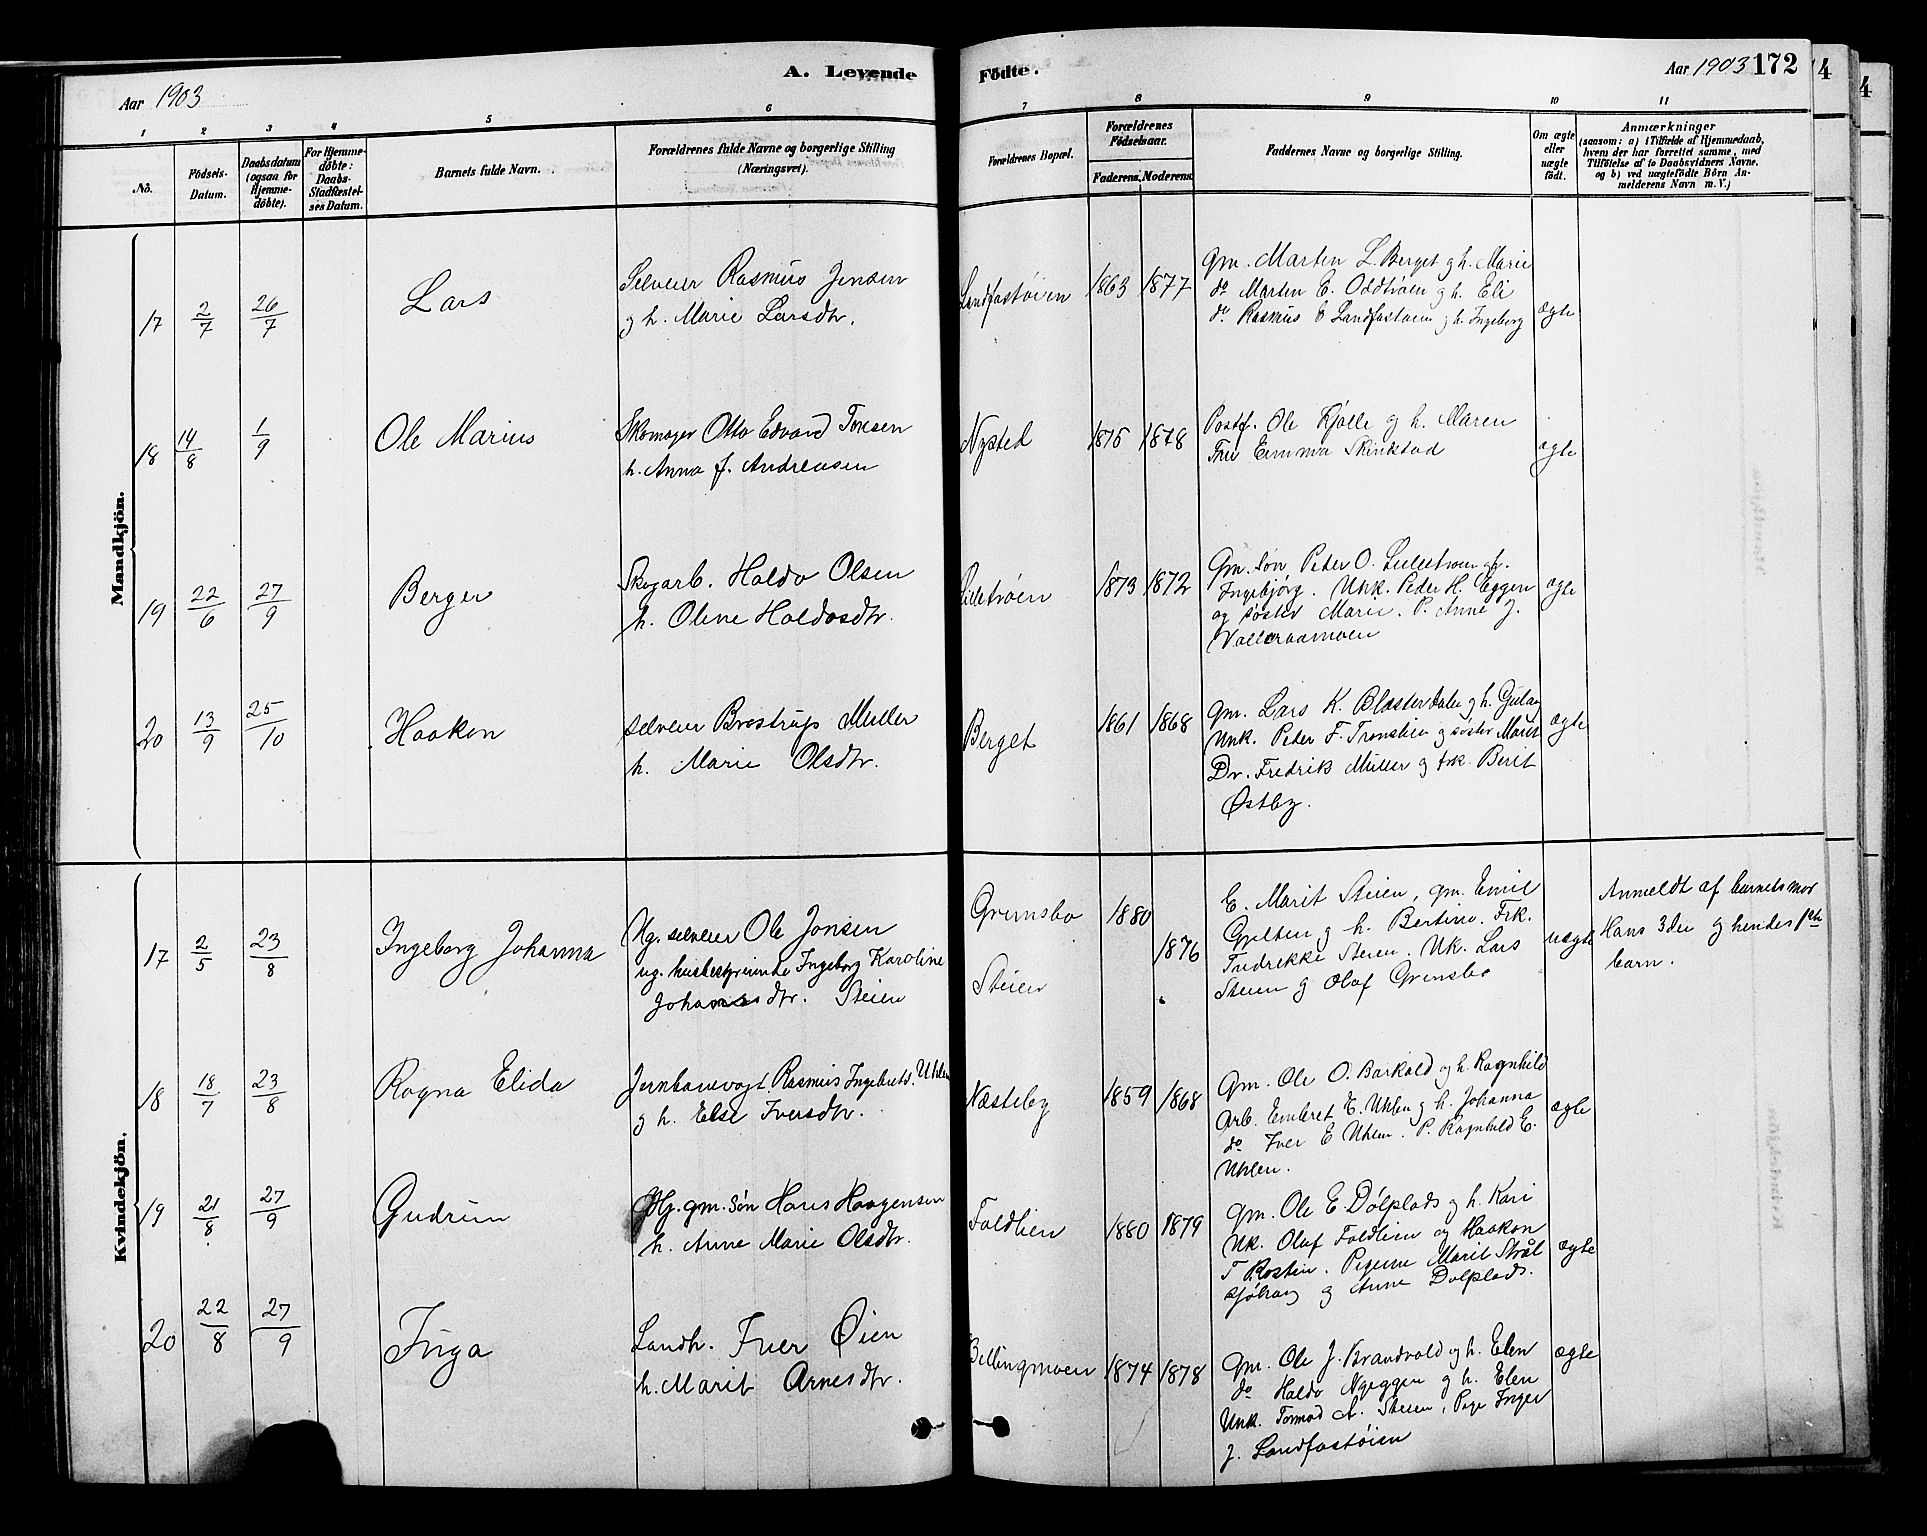 A. Levende
Födte.
Aar 1903
Aar 1903 172
4
4
1 2 3 4 5 6 7 8 9 10 11
No.
Födsels-
Datum.
Daabsdatum
(ogsaa for
Hjemme-
döbte).
For Hjemme-
döbte:
Daabs-
Stadfæstel-
ses Datum.
Barnets fulde Navn.
Forældrenes fulde Navne og borgerlige Stilling
(Næringsvei).
Forældrenes Bopæl.
Forældrenes
Födselsaar.
Faderens. Moderens.
Faddernes Navne og borgerlige Stilling.
Om ægte
eller
uægte
födt.
Anmærkninger
(saasom: a) i Tilfælde af Hjemmedaab,
hvem der har forrettet samme, med
Tilföielse af to Daabsvidners Navne,
og b) ved uægtefödte Börn An-
melderens Navn m. V.)
Mandkjön.
17 2/7 26/7 Lars
Selveier Rasmus Jensen
og h. Marie Larsdtr.
Landfastøien 1863 1877
Gm. Marten L. Berget og h. Marie
do Marten E. Oddtrøen og h. Eli
do Rasmus E Landfastøien og h. Ingeborg
ægte
18 14/8 1/9 Ole Marius
Skomager Otto Edvard Tonsen
h. Anna f. Andreasen
Nysted 1875 1878
Postf. Ole Kjølle og h. Maren
Fru Emma Skinstad
ægte
19 22/6 27/9 Berger
Skogarb. Haldo Olsen
h. Oline Haldosdtr.
Lilletrøen 1873 1872
Gm. søn Peter O. Lilletrøen og h.
Ingebjørg. Unk. Peder H. Eggen
og søster Marie. P. Anne J.
Volleraamoen
ægte
20 13/9 25/10 Haakon
selveier Brostrup Müller
h. Marie Olsdtr.
Berget 1861 1868
Gm. Lars K. Blæsterdalen og h. Gjula
Unk. Peder F. Tronslien og søster Marit
Dr. Fredrik Müller og frk. Berit
Østby.
ægte
Kvindekjön.
17 2/5 23/8 Ingeborg Johanna
Ug. selveier Ole Jonsen
ug. husbestyrerinde Ingeborg Karoline
Johannesdtr. Steien
Grimsbo
Steien
1880
1876
E. Marit Steien, gm. Emil
og h. Bertine. Frk.
Fredrikke Steien. Uk. Lars
Steien og Olaf Grimsbo
uægte
Anmeldt af barnets mor
Hans 3die og hendes 1ste
barn.
18 18/7 23/8 Ragna Elida
Jernbanevogt Rasmus Ingebretd. Uhlen
og h. Else Iversdtr.
Næsteby 1859 1868
Gm. Ole O. Barkald og h. Ragnhild
Arb. Embret E. Uhlen og h. Johanna
do Iver E Uhlen. P. Ragnhild E.
Uhlen.
ægte
19 21/8 27/9 Gudrun
gm. søn Hans Haagensen
h. Anne Marie Olsdtr.
Foldlien 1880 1879
Gm. Ole E. Dølplads og h. Kari
Uk. Olaf Foldlien og Haakon
T Røsten. Pigerne Marit Strål
sjøhaug og Anne Dølplads.
ægte
20 22/8 27/9 Inga
Landh. Iver Øien
h. Marit Arnesdtr.
Bellingmoen 1874 1878
Gm. Ole J. Brandvold og h. Elen
do Haldo Nyeggen og h. Elen
Unk. Tormod A. Steien, Pige Inger
J. Landfastøien
ægte